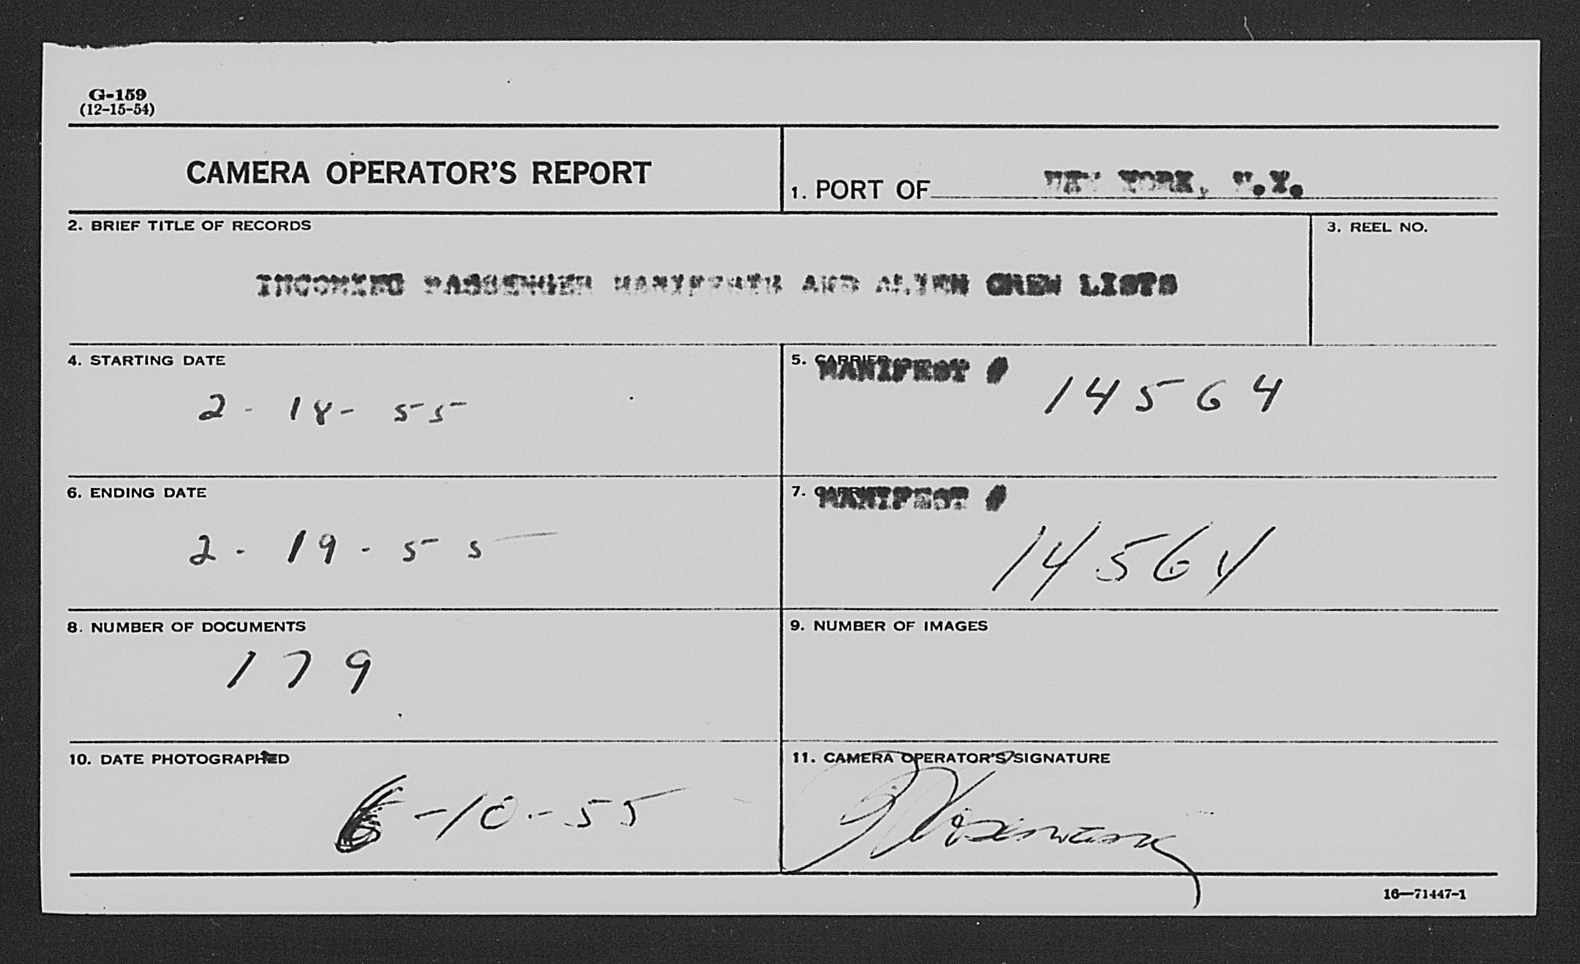 G-159
(12-15-54)
CAMERA OPERATOR'S REPORT
1. PORT OF NEW YORK, N.Y.
2. BRIEF TITLE OF RECORDS
3. REEL NO.
INCOMING PASSENGER MANIFESTS AND ALIEN CREW LISTS
4. STARTING DATE
2-18-55
5. CARRIER
MANIFEST # 14564
6. ENDING DATE
2-19-55
7. CARRIER
MANIFEST #
14564
8. NUMBER OF DOCUMENTS
179
9. NUMBER OF IMAGES
10. DATE PHOTOGRAPHED
6-10-55
11. CAMERA OPERATOR'S SIGNATURE
16—71447-1